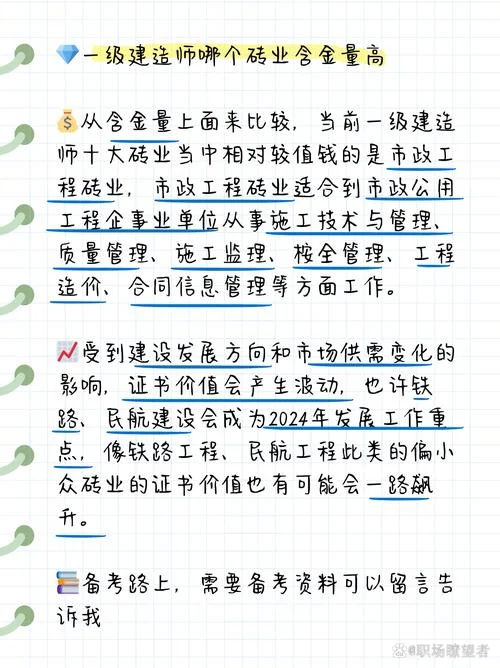 💎一级建造师哪个砖业含金量高
💰从含金量上面来比较，当前一级建造
师十大砖业当中相对较值钱的是市政工
程砖业，市政工程砖业适合到市政公用
工程企事业单位从事施工技术与管理、
质量管理、施工监理、桉全管理、工程
造价、合同信息管理等方面工作。
📈受到建设发展方向和市场供需变化的
影响，证书价值会产生波动，也许铁
路、民航建设会成为2024年发展工作重
点，像铁路工程、民航工程此类的偏小
众砖业的证书价值也有可能会一路飙
升。
📚备考路上，需要备考资料可以留言告
诉我
@职场瞭望者